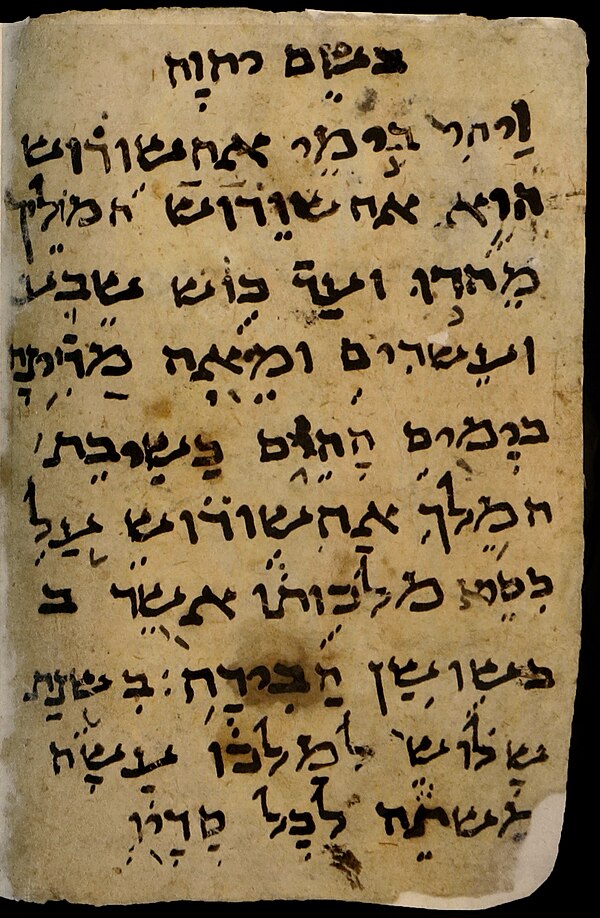 בשם יהוה
ויהי בימי אחשורוש
הוא אחשורוש המולך
מהדו ועד כוש שבע
ועשרים ומאה מדינה
בימים ההם כשיבת
המלך אחשורוש על
כסא מלכותו אשר ב
בשושן הבירה: בשנת
שלוש למלכו עשה
משתה לכל סריו